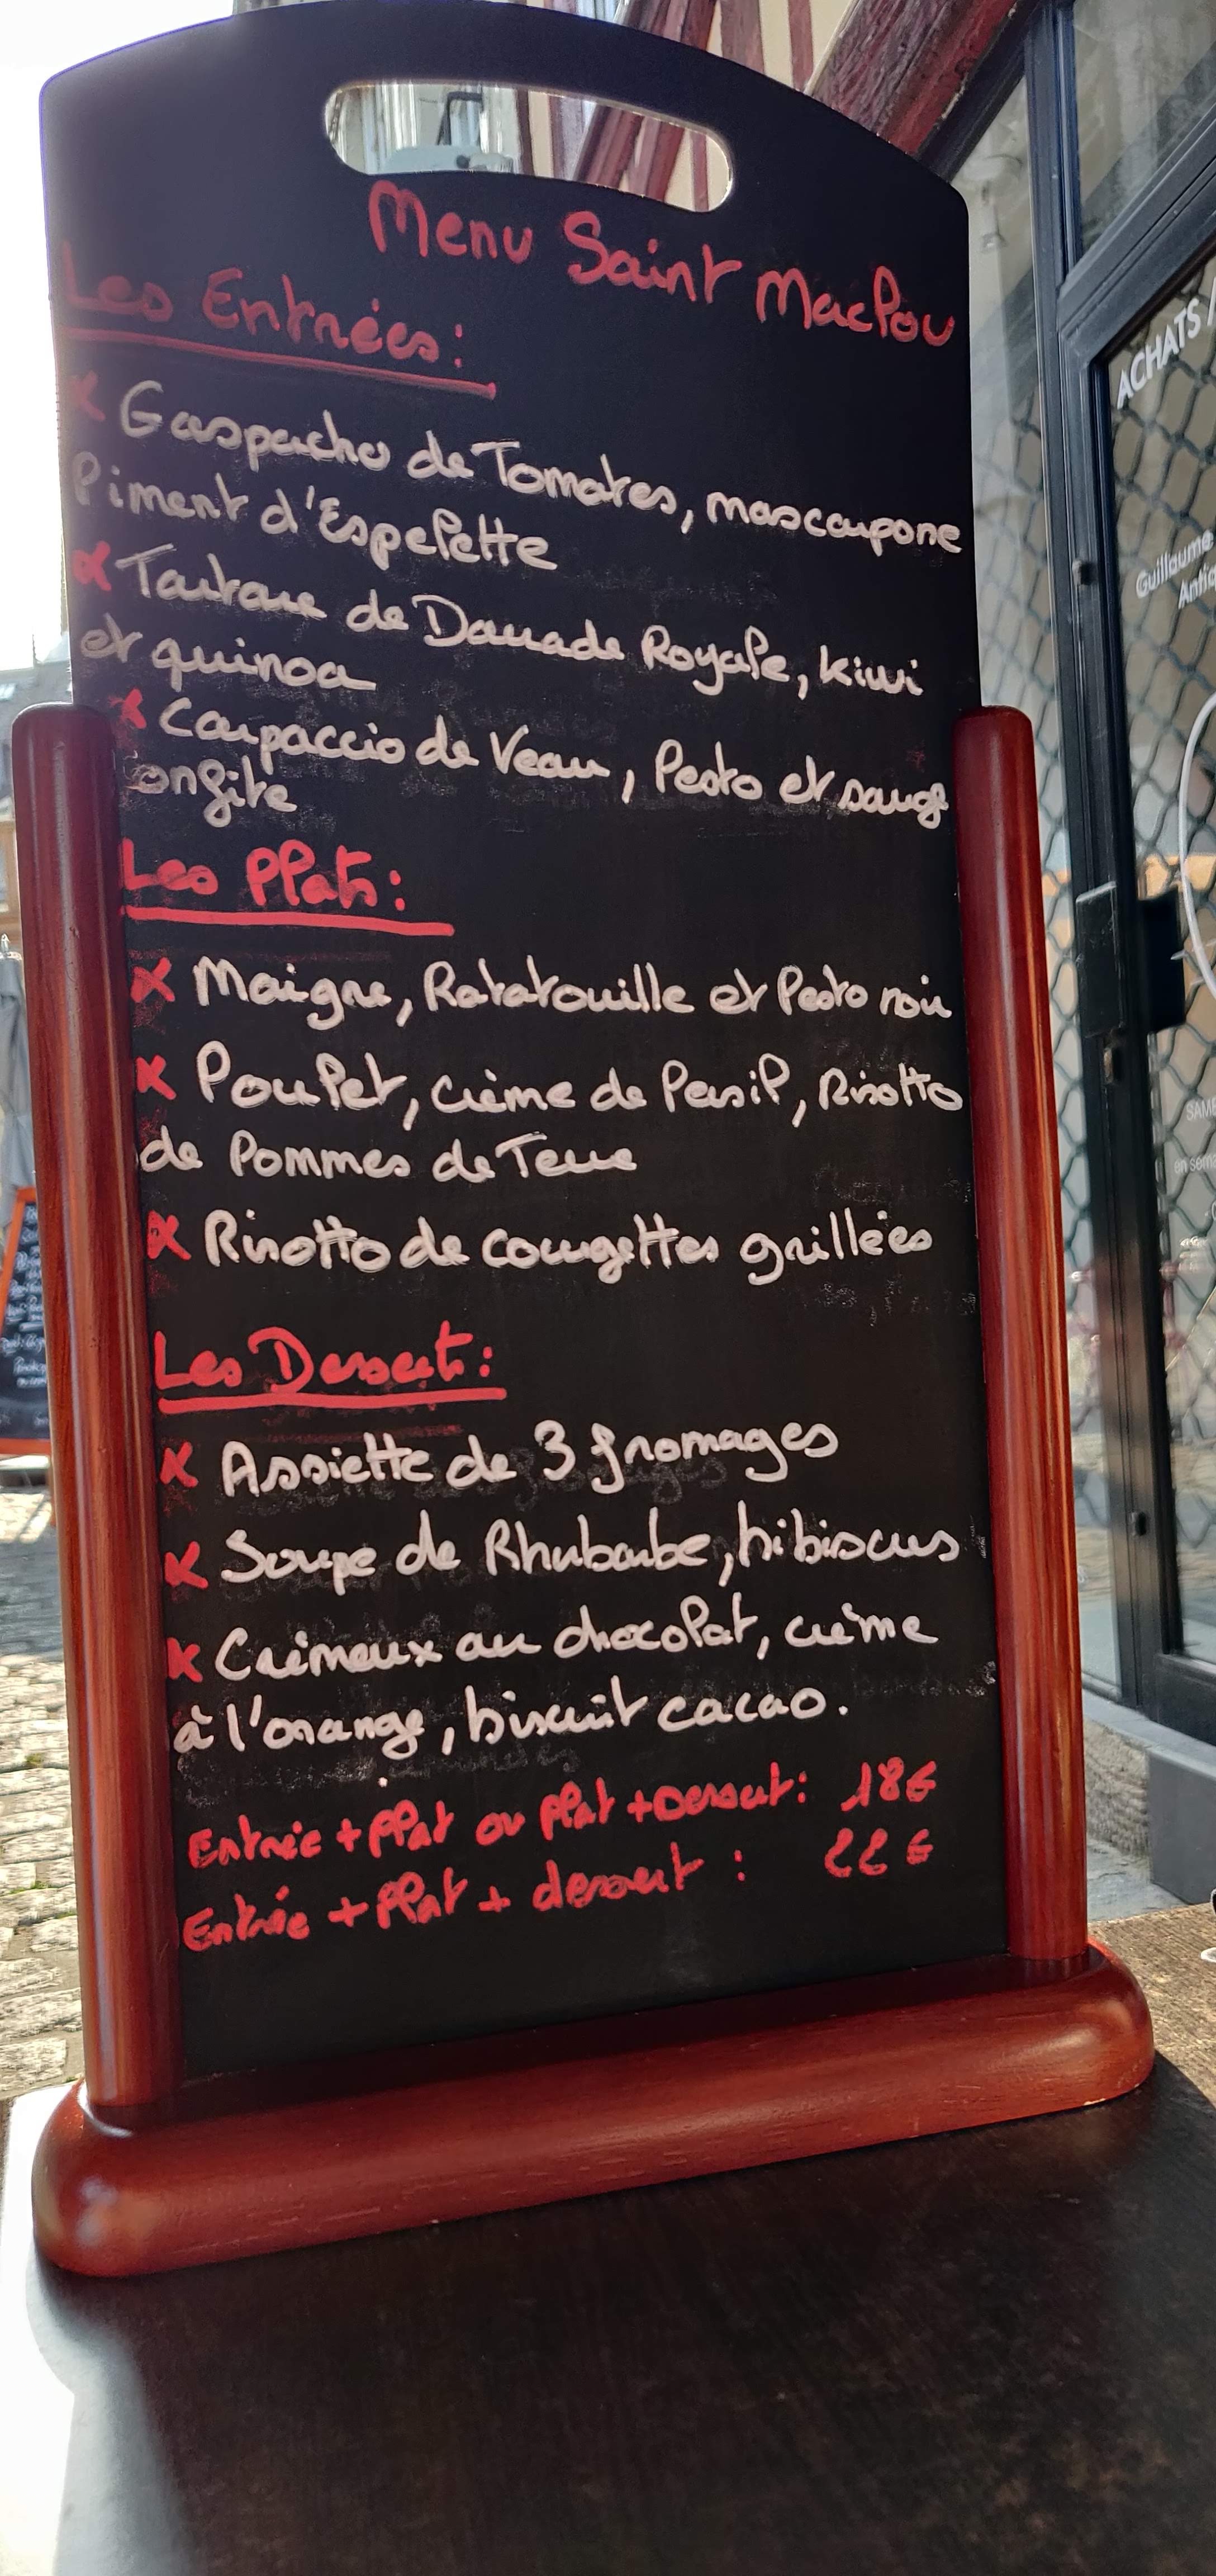 Menu Saint Maclou
Les Entrées:
x Gaspacho de Tomates, mascarpone
Piment d'Espelette
x Tartare de Daurade Royale, kiwi
et quinoa
x Carpaccio de Veau, Pesto et sauge
Les Plats:
x Maigre, Ratatouille et Pesto noir
x Poulet, crème de Persil, Risotto
de Pommes de Terre
x Risotto de courgettes grillées
Les Dessert:
x Assiette de 3 fromages
x Soupe de Rhubarbe, hibiscus
x Crémeux au chocolat, crème
à l'orange, biscuit cacao.
Entrée + Plat ou Plat + Dessert: 18€
Entrée + Plat + dessert : 22€
ACHATS /
Guillaume